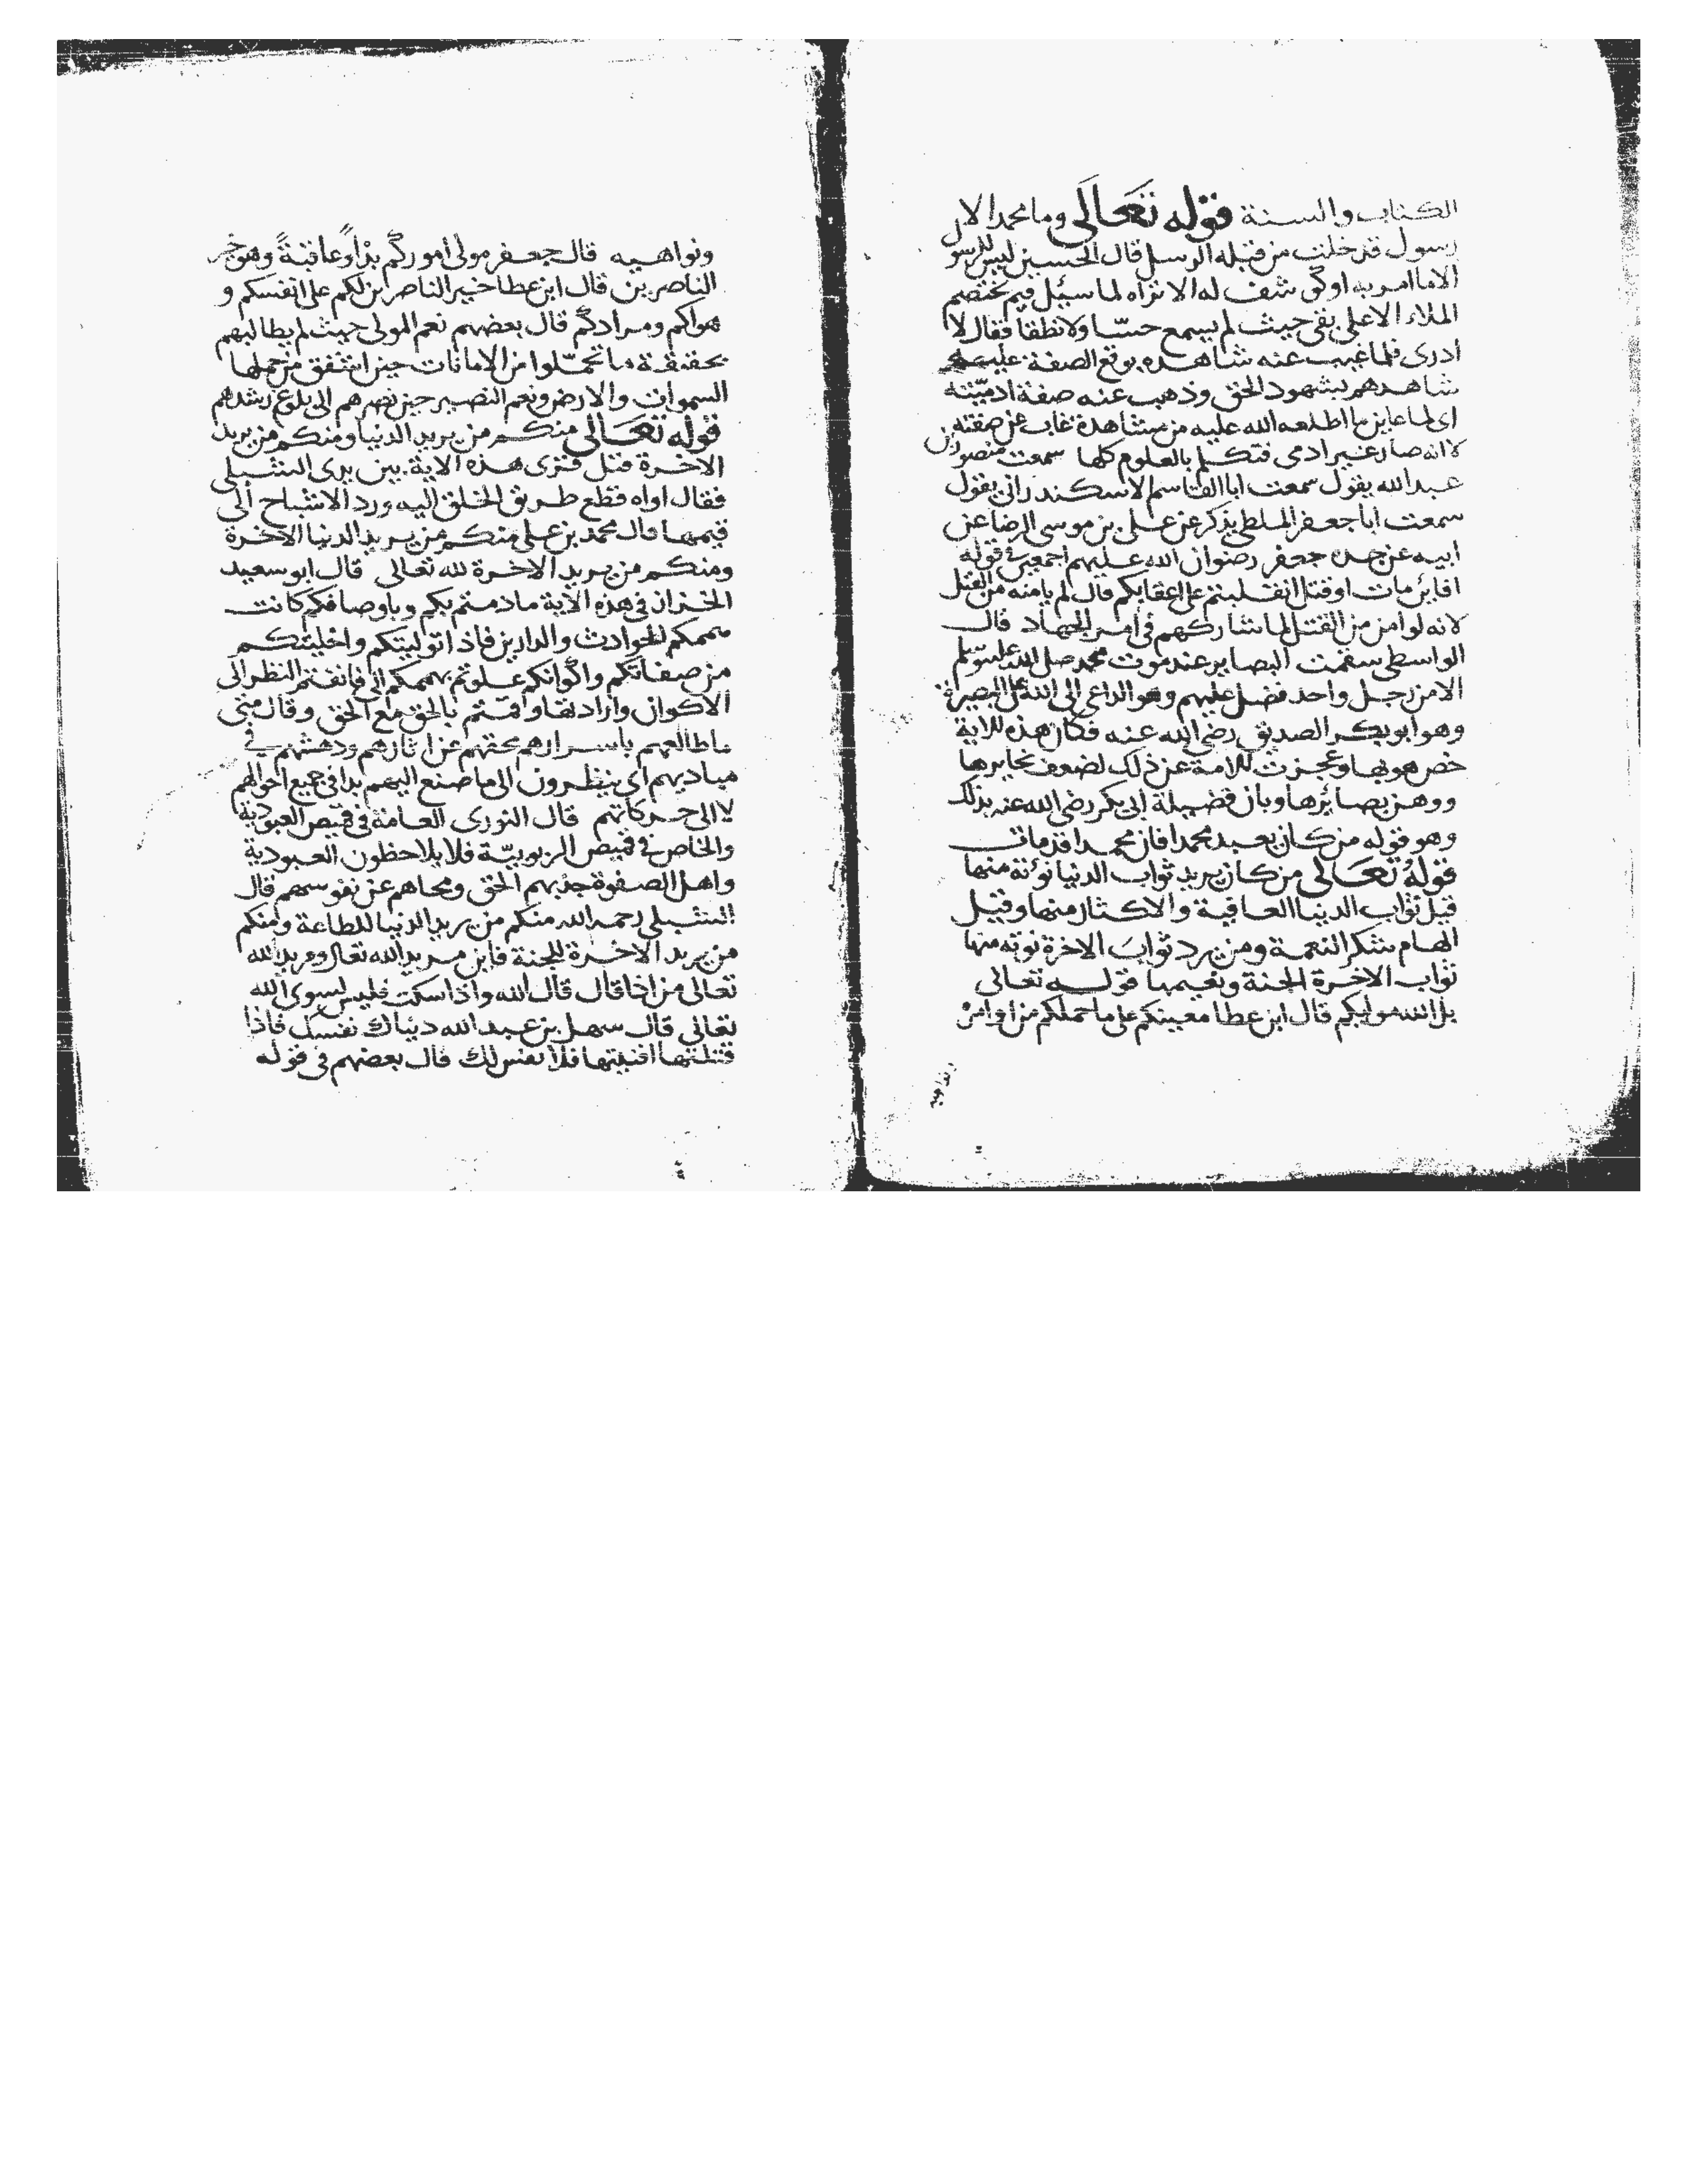 الكتاب والسنة قوله تعالى وما محمد الا
رسول قد خلت من قبله الرسل قال الحسين ليس للرسو
الا ما امر به او كوشف له الا تراه لما سيئل فيم يختصم
الملاء الاعلى بقى حيث لم يسمع حسّا ولا نطقا فقال لا
ادرى فلما غيب عنه شاهده بوقع الصفة عليه
شاهدهم بشهود الحق وذهب عنه صفة ادميّته
اى لما عاين ما اطلعه الله عليه من مشاهدة غاب عن صفته
لانه صار غير ادمى فتكلم بالعلوم كلها سمعت منصور بن
عبد الله يقول سمعت ابا القاسم الاسكندرانى يقول
سمعت ابا جعفر الملطى يذكر عن على بن موسى الرضا عن
ابيه عن جده جعفر رضوان الله عليهم اجمعين فى قوله
افاين مات او قتل انقلبتم على اعقابكم قال لم يامنه من القتل
لانه لو امن من القتل لما شاركهم فى امر الجهاد قال
الواسطى سقمت البصاير عند موت محمد صلى الله عليه وسلم
الا من رجل واحد فضل عليهم وهو الداعى الى الله على البصيرة
وهو ابو بكر الصديق رضى الله عنه فكان هذه للاية
خص هو بها وعجزت للامة عن ذلك لضعف نحايزها
ووهن بصائرها وبان فضيلة ابى بكر رضى الله عنه بذلك
وهو قوله من كان يعبد محمدا فان محمدا قد مات
قوله تعالى من كان يريد ثواب الدنيا نؤته منها
قيل ثواب الدنيا العافية والاكثار منها وقيل
الهام شكر النعمة ومن يرد ثواب الاخرة نوته منها
ثواب الاخرة الجنة ونعيمها قوله تعالى
بل الله موليكم قال ابن عطا معينكم على ما حملكم من اوامره
ونواهيه
ونواهيه قال جعفر مولى اموركم بدْاً وعاقبةً وهو خير
الناصرين قال ابن عطا خير الناصرين لكم على انفسكم و
هواكم ومرادكم قال بعضهم نعم المولى حيث لم يطالبهم
بحقيقة ما تحمّلوا من الامانات حين اشفق من حملها
السموات والارض ونعم النصير حين نصرهم الى بلوغ رشدهم
قوله تعالى منكم من يريد الدنيا ومنكم من يريد
الاخرة قيل قرى هذه الاية بين يدى الشبلى
فقال اواه قطع طريق الخلق اليه ورد الاشباح الى
قيمها قال محمد بن على منكم من يريد الدنيا الاخرة
ومنكم من يريد الاخرة لله تعالى قال ابو سعيد
الخزاز فى هذه الاية ما دمتم بكم وباوصافكم كانت
هممكم للحوادث والدارين فاذا توليتكم واخليتكم
من صفاتكم واكوانكم علوتم بهممكم الى فانفتم النظر الى
الاكوان وارادتها واقمتم بالحق مع الحق وقال متى
ما طالعهم باسرارهم محقهم عن اثارهم ودهشهم فى
مباديهم اى ينظرون الى ما صنع اليهم بدا فى جميع احوالهم
لا الى حركاتهم قال النورى العامة فى قميص العبودية
والخاص فى قميص الربوبيّة فلا يلاحظون العبودية
واهل الصفوة جذبهم الحق ومحاهم عن نفوسهم قال
الشبلى رحمه الله منكم من يريد الدنيا للطاعة ومنكم
من يريد الاخرة للجنة فاين مريد الله تعالى ومريد الله
تعالى من اذا قال قال الله واذا سكت فليس لسوى الله
تعالى قال سهل بن عبد الله دنياك نفسك فاذا
قتلتها افنيتها فلا نفس لك قال بعضهم فى قوله